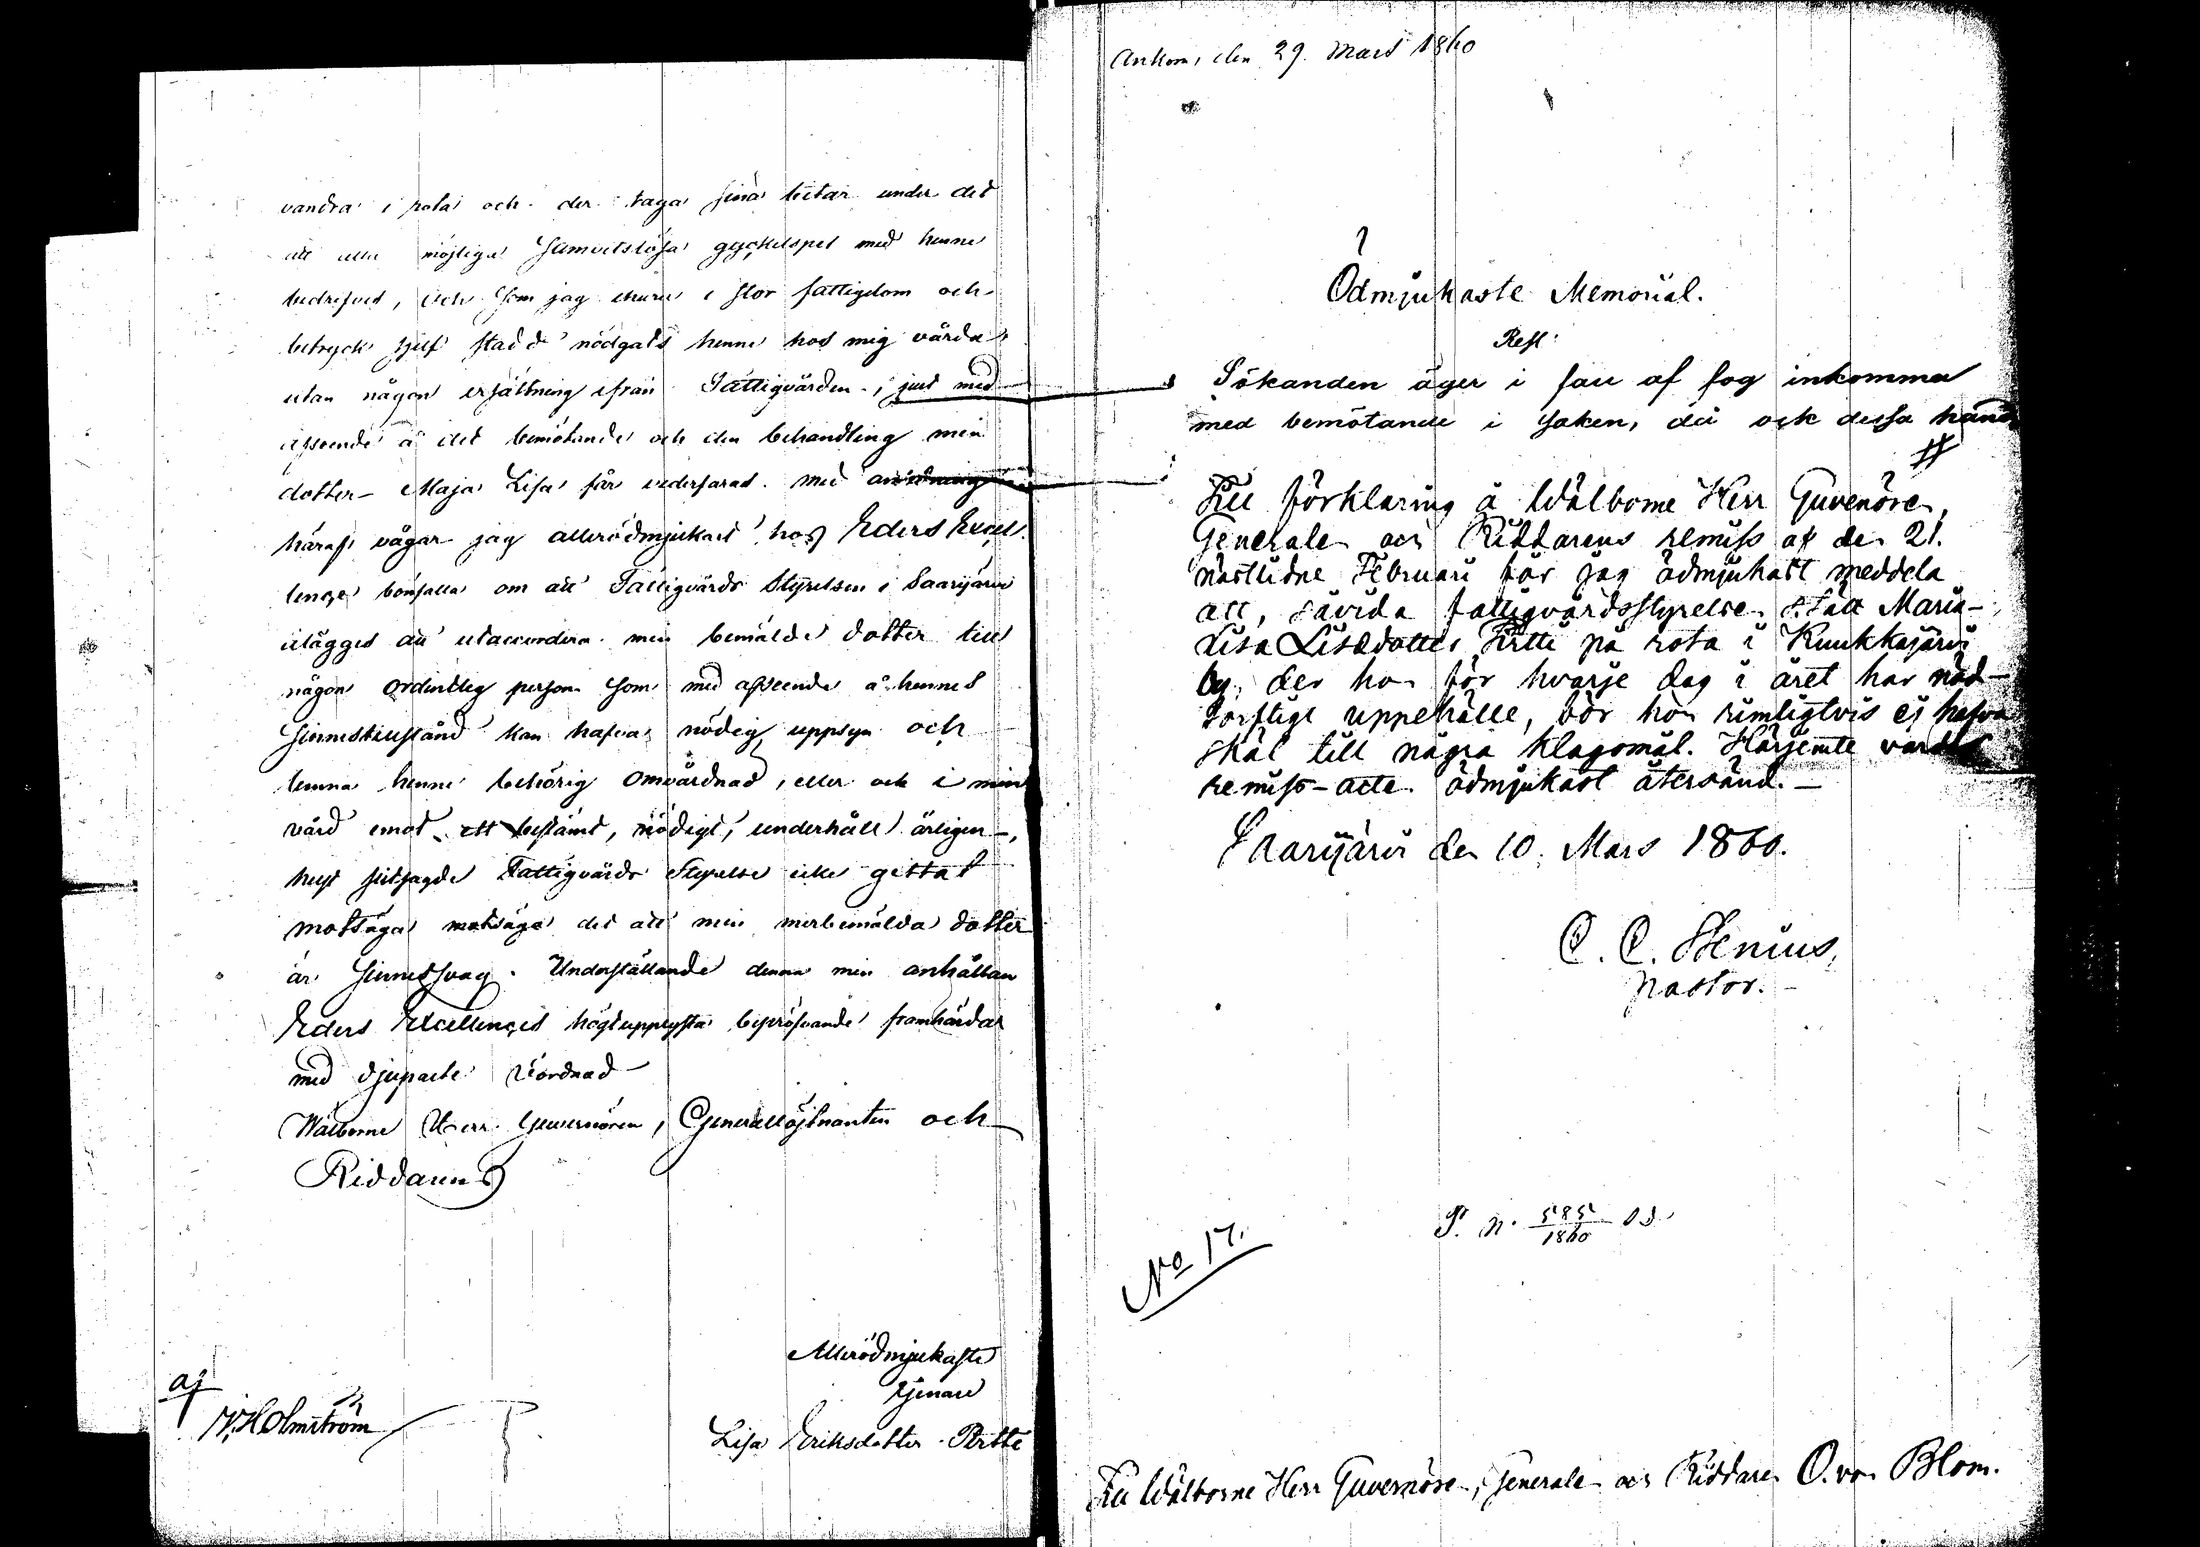 vandra i rota och der taga sina bitar under det
att alla möjliga samvetslösa gyckelspel med henne
bedrifves, och som jag ehuru i stor fattigdom och
betryck sjelf stadd nödgats henne hos mig vårda
utan någon ersättning ifrån Fattigvården; just med
afseende å det bemötande och den behandling min
dotter Maja Lisa får vederfaras. med anledning
häraf vågar jag alleródmjukast hos Eders Excel-
lençe bönfalla om att Fattigvårds Styrelsen i Saarijärvi
ålägges att utackordera min bemälde dotter till
någon ordentlig person som med afseende å hennes
Sinnestillstånd kan hafva nödig uppsyn och
lemna henne behörig omvårdnad, eller ock i min
vård emot ett bestämt, nödigt, underhåll årligen,
helst sistsagde Fattigvårds Styrelse icke gittat
motsäga motsäga det att min merbemälda dotter
är Sinnessvag. Underställande denna min anhållan
Eders Excellençes högtupplysta bepröfvande framhärdar
med djupaste vördnad
Wälborne Herr Guvernören, Generallöjtnanten och
Riddarens
Allerödmjukaste
tjenare
Lisa Eriksdotter Pertte
af
Holmström
Ankom, den 29. Mars 1860
Ödmjukaste Memorial.
Resl:
Sökanden äger i fall af fog inkomma
med bemötande i saken, då ock dessa hand
#
Till förklaring å Wälborne Herr Guvenören,
Generalen och Riddarens remiss af den 21.
nästlidne Februari får jag ödmjukast meddela
att, såvida fattigvårdsstyrelsen stält Maria
Lisa Lisedotter Pertti på rota i Kuukkajärvi
by, der hon för hvarje dag i året har nöd-
torftigt uppehälle, bör hon rimligtvis ej hafva
skäl till några klagomål. Härjemte varder
remiss-acten ödmjukast återsänd. —
Saarijärvi den 10. Mars 1860.
C. C. Stenius,
pastor.
P. N. 585/1860 
No 17.
Till Wälborne Herr Guvernören, Generalen och Riddaren O. von Blom.